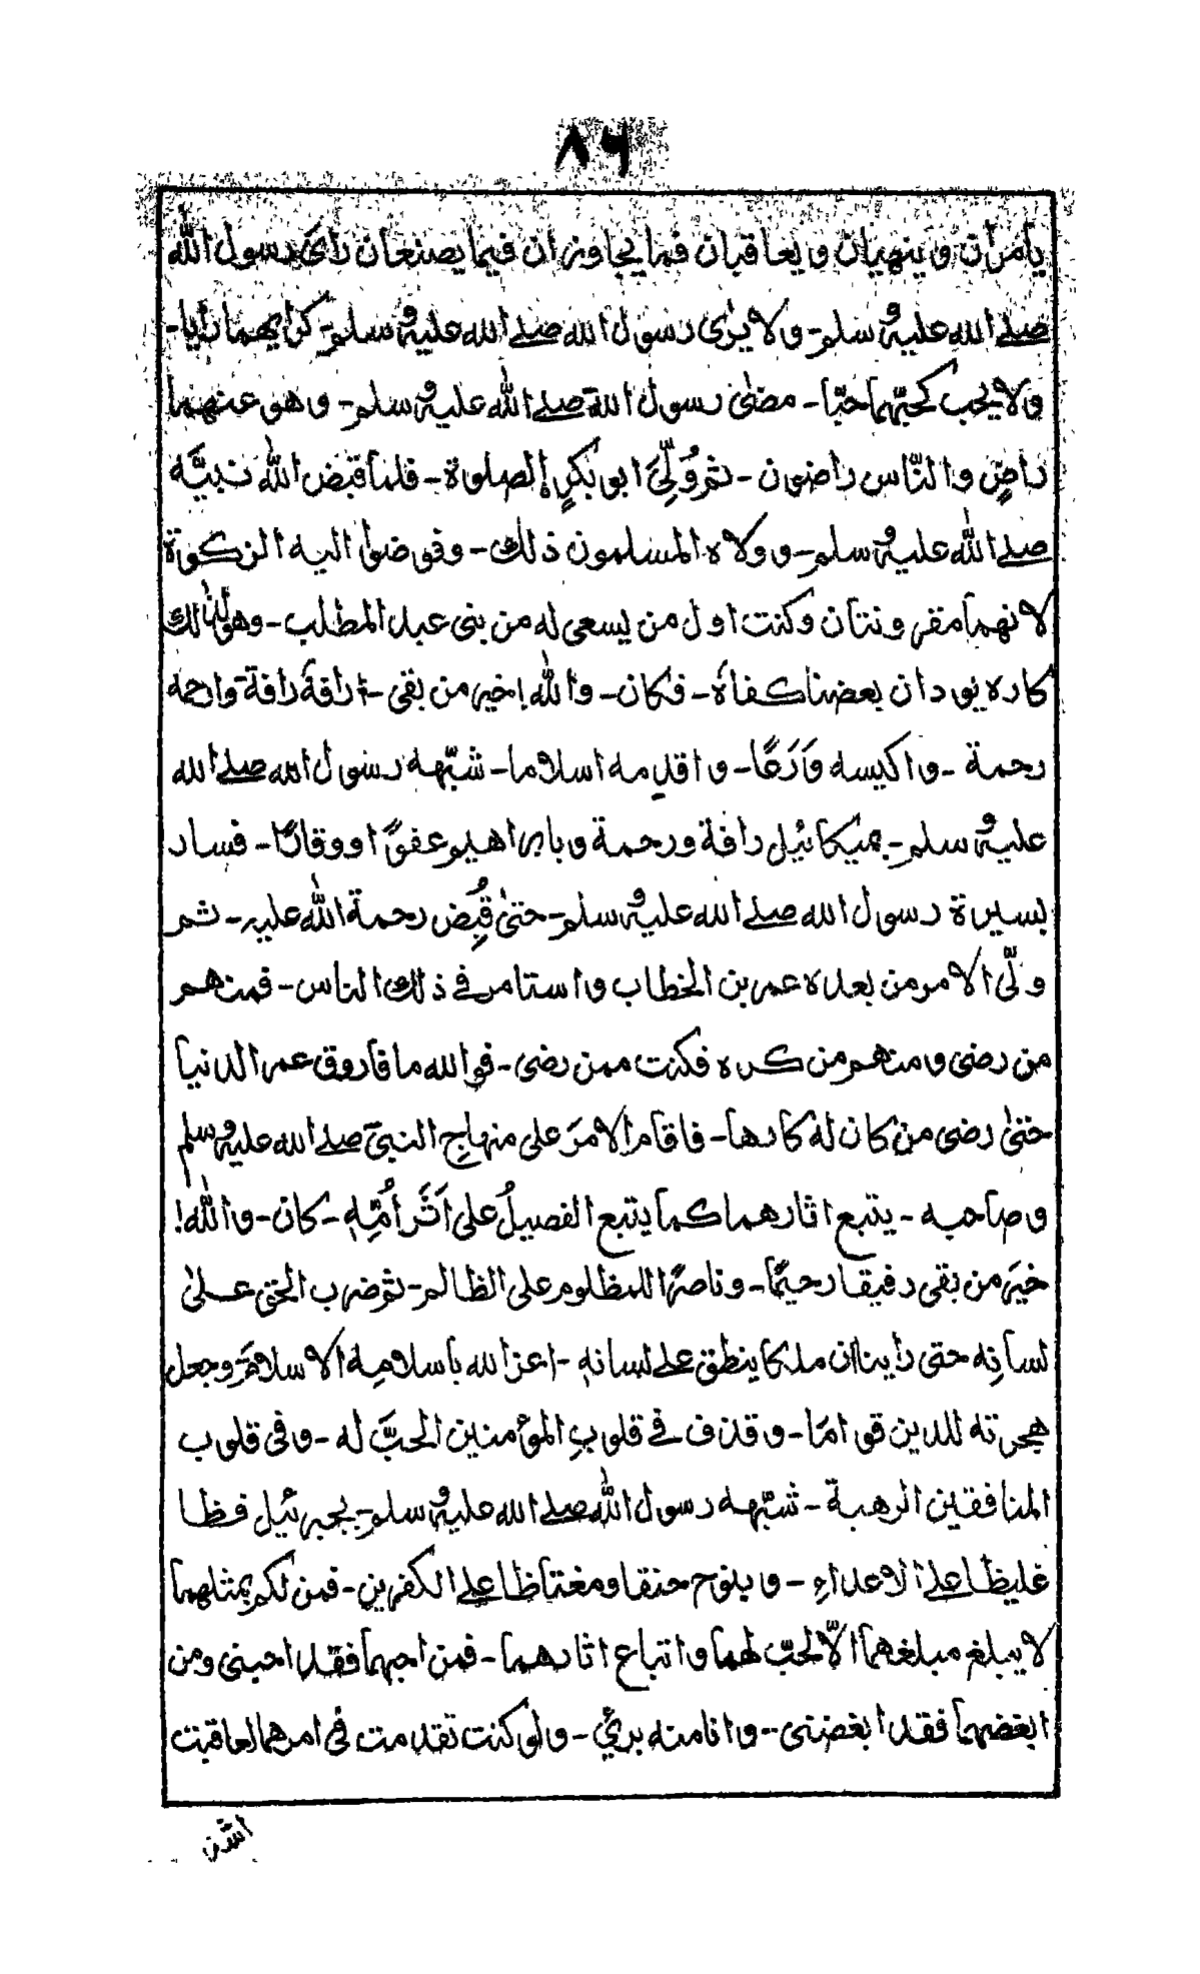 ۸۶
يامران وينهيان ويعاقبان فما يجاوزان فيما يصنعان رائ رسول الله
صلے الله عليه وسلم- ولا يرٰى رسول الله صلے الله عليه وسلم- كرايهما رايا-
ولا يحب كحبّهما حبّا- مضىٰ رسول الله صلے الله عليه وسلم- وهو عنهما
راضٍ والنّاس راضون- ثم وُلِّىَ ابو بكرٍ الصلوة- فلما قبض الله نبيَّه
صلے الله عليه وسلم- وولاه المسلمون ذلك- وفوضوا اليه الزكوة
لانهما مقرونتان وكنت اول من يسعى له من بنى عبد المطلب- وهو لذلك
كاره يود ان بعضنا كفاهُ- فكان- والله! خير من بقى- ارافهَ رافةً وارحمه
رحمة- واكيسه وَرَعًا- واقدمه اسلاما- شبّهه رسول الله صلے الله
عليه وسلم- بميكائيل رافة ورحمة وبابراهيم عفوًا ووقارًا- فسار
بسيرة رسول الله صلے الله عليه وسلم- حتىٰ قُبِض رحمة الله عليه- ثم
ولّى الامر من بعده عمر بن الخطاب واستامر فے ذلك الناس- فمنهم
من رضى ومنهم من كره فكنت ممن رضى- فوالله ما فاروق عمر الدنيا
حتىٰ رضى من كان له كارها- فاقام الامرَ على منهاجِ النبيّ صلے الله عليه وسلم
وصاحبه- يتبع اثارهما كما يتبع الفصيلُ على اَثَر اُمِّهٖ- كان- والله!
خيرَ من بقى رفيقا رحيمًا- وناصرًا للمظلوم على الظالم- ثم ضرب الحق علىٰ
لسانِه حتى راينا ان ملكا ينطق علے لسانهٖ- اعز الله باسلامِهٖ الاسلامَ وجعل
هجرته للدين قوامًا- وقذف فے قلوبِ المؤمنين الحبَّ له- وفى قلوب
المنافقين الرهبة- شبّهه رسول الله صلے الله عليه وسلم- بجبرئيل فظا
غليظا علے الاعداءِ- وبنوح حنقا ومغتاظا علے الكفرين- فمن لكم بمثلهما
لا يبلغ مبلغهما الّا لحبّ لهما واتباع اثارهما- فمن احبهما فقد احبنى ومن
ابغضهما فقد ابغضنى- وانا منه برئي- ولو كنت تقدمت فى امرهما لعاقبت
اشد